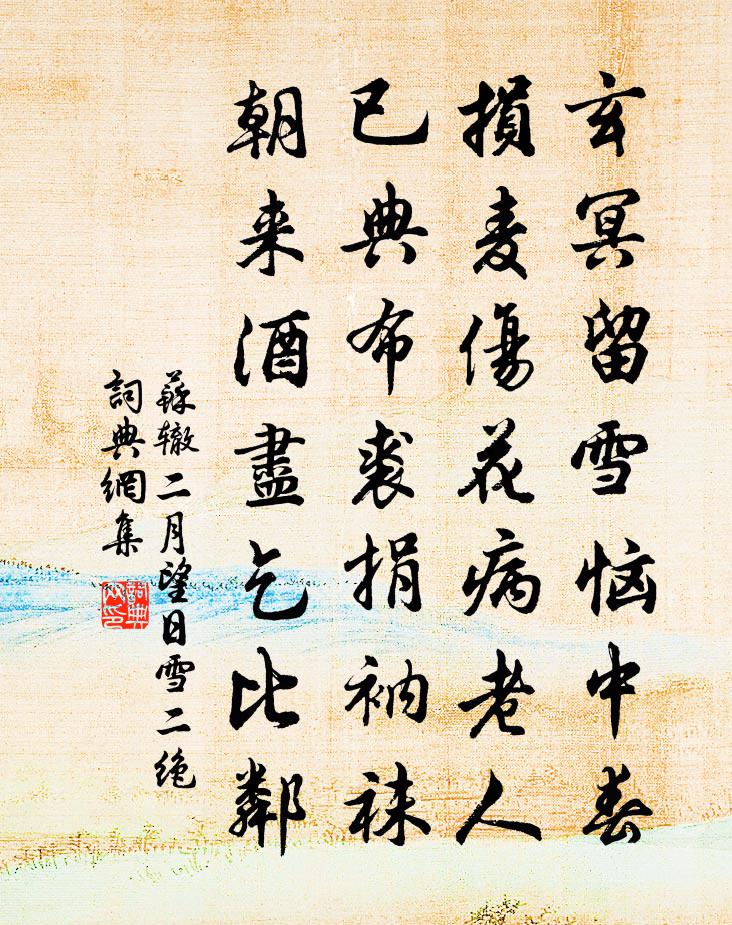 玄冥留雪恼中春
損麦傷花病老人
已典布裘捐衲袜
朝来酒盡乞比鄰
蘇辙二月望日雪二绝
詞典網集